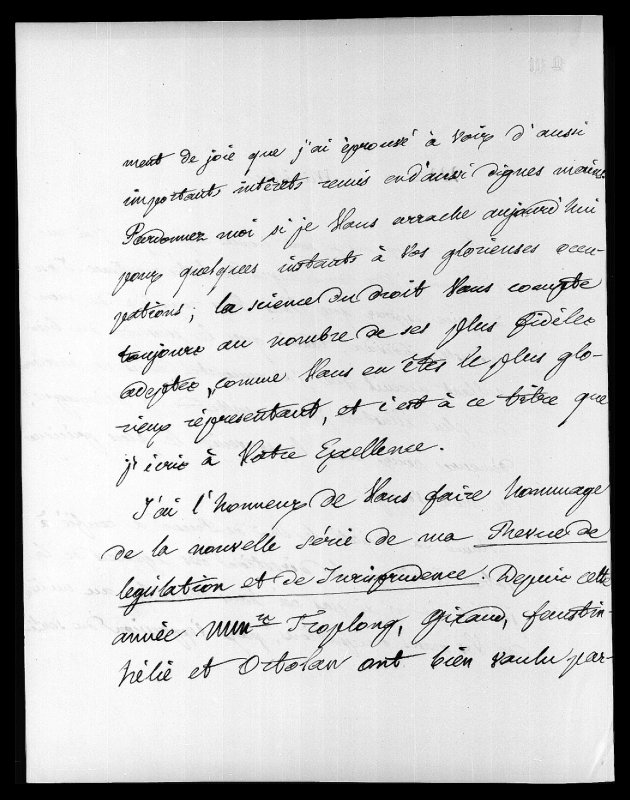 ment de joie que j'ai éprouvé à voir d'aussi
importants intérêts remis en d'aussi dignes mains.
Pardonnez moi si je Vous arrache aujourd'hui
pour quelques instants à Vos glorieuses occu-
pations; la science du droit Vous compte
toujours au nombre de ses plus fidèles
adeptes, comme Vous en êtes le plus glo-
rieux représentant, et c'est à ce titre que
j'écris à Votre Excellence.
J'ai l'honneur de Vous faire hommage
de la nouvelle série de ma Revue de
législation et de Jurisprudence. Depuis cette
année MMrs Troplong, Giraud, faustin-
hélie et Ortolan ont bien voulu par-